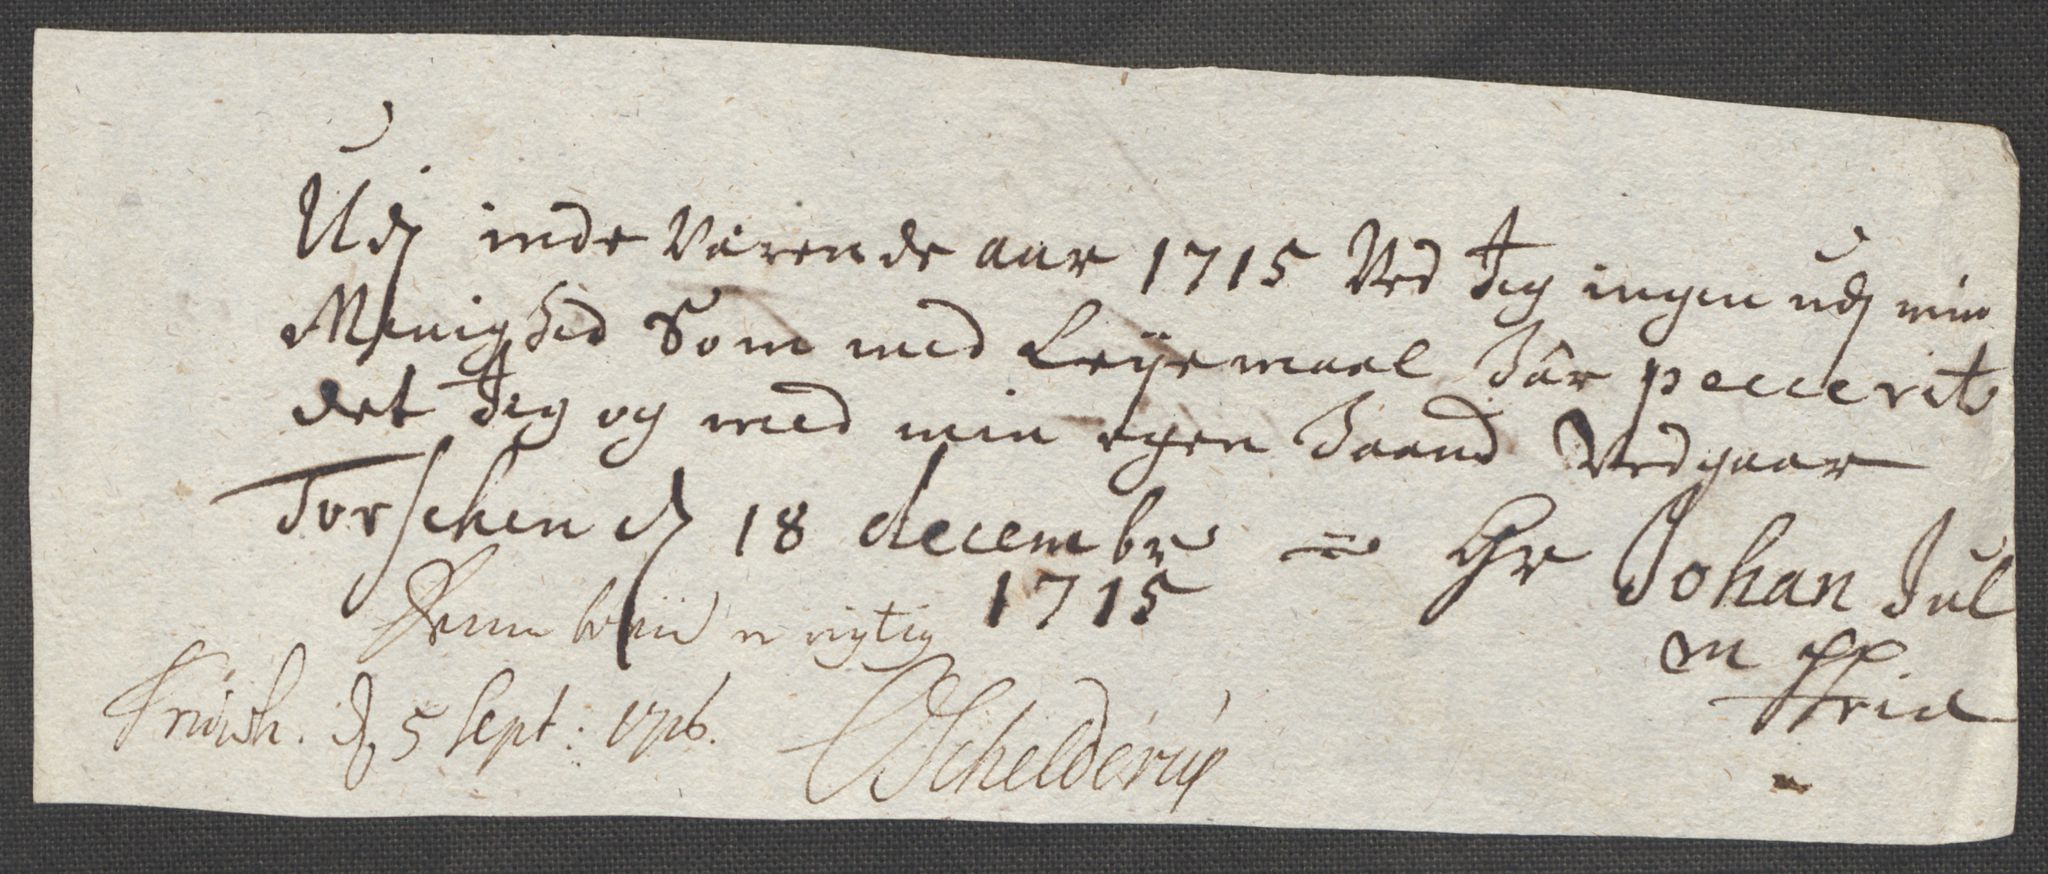 Udj inde Værende aar 1715 Ved Jeg ingen udj min
Menighed Som med Leyermaal Har peccerit
det Jeg og med min egen Haand Vedgaar
Torschen d 18 decembr = Hr Johan Jul
1715
Denne er rigtig
d 5 Sept: 1716.
Schelderup